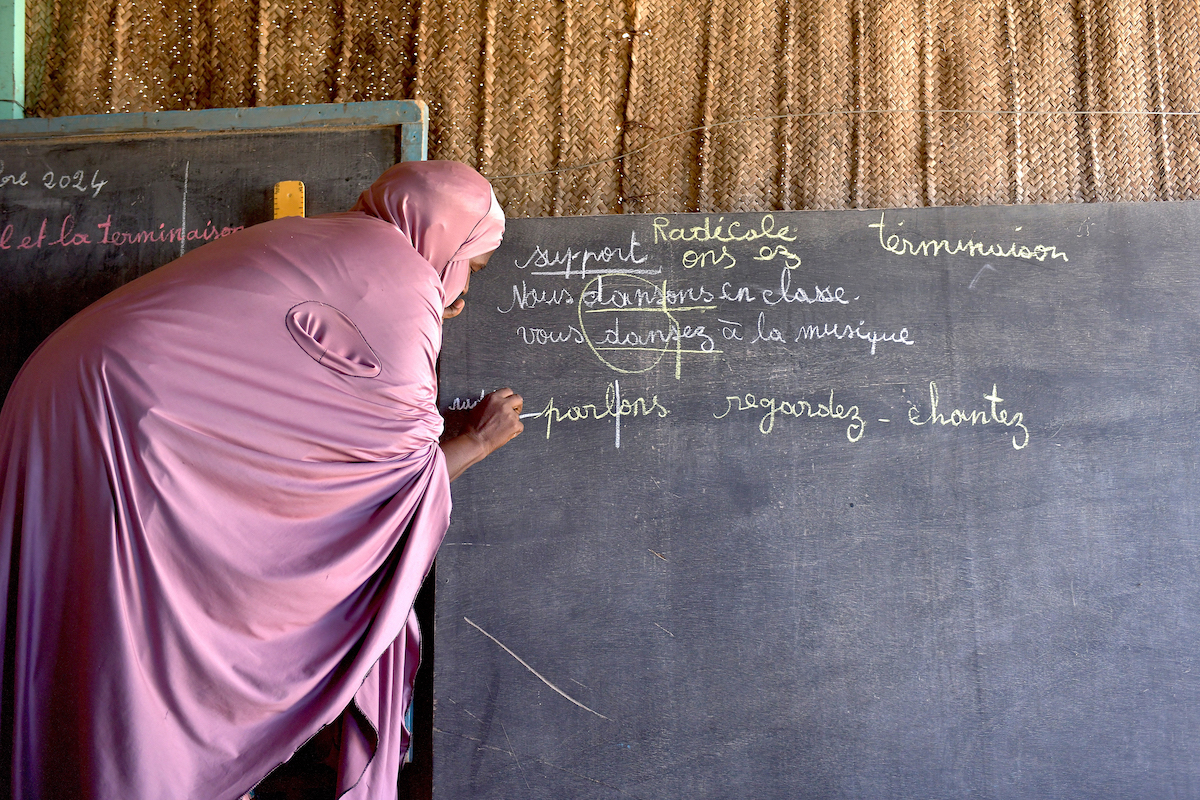 bre 2024
l et la terminaison
support Radécale términaison
ons ez
Nous dansons en classe.
vous dansez à la musique
parlons regardez - chantez